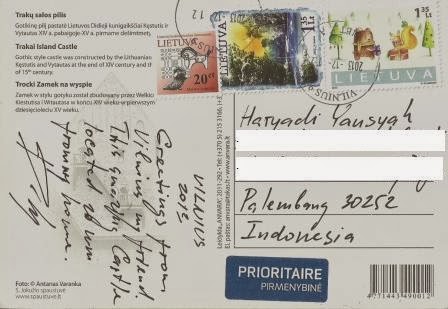 Trakų salos pilis
Gotikinę pilį pastatė Lietuvos Didieji kunigaikščiai Kęstutis ir
Vytautas XIV a. pabaigoje-XV a. pirmame dešimtmetį.
Trakai Island Castle
Gothic style castle was constructed by the Lithuanian
Kęstutis and Vytautas at the end of XIV century and
of 15th century.
Trocki Zamek na wyspie
Zamek w stylu gotyku został zbudowany przez Wielki
Kiestutisa i Witautasa w końcu XIV wieku-w pierwszym
dziesięcioleciu XV wieku.
LIETUVA
20ct
LIETUVA
1,35 Lt
1,35 Lt
LIETUVA
VILNIUS
2013
VILNIUS
2013
Greetings from
Vilnius my friend.
This Castle
located 28 km
from my home.
Haryadi Yansyah
Palembang 30252
Indonesia
PRIORITAIRE
PIRMENYBINĖ
4771443490012
Foto: © Antanas Varanka
S. Jokužio spaustuvė
www.spaustuve.lt